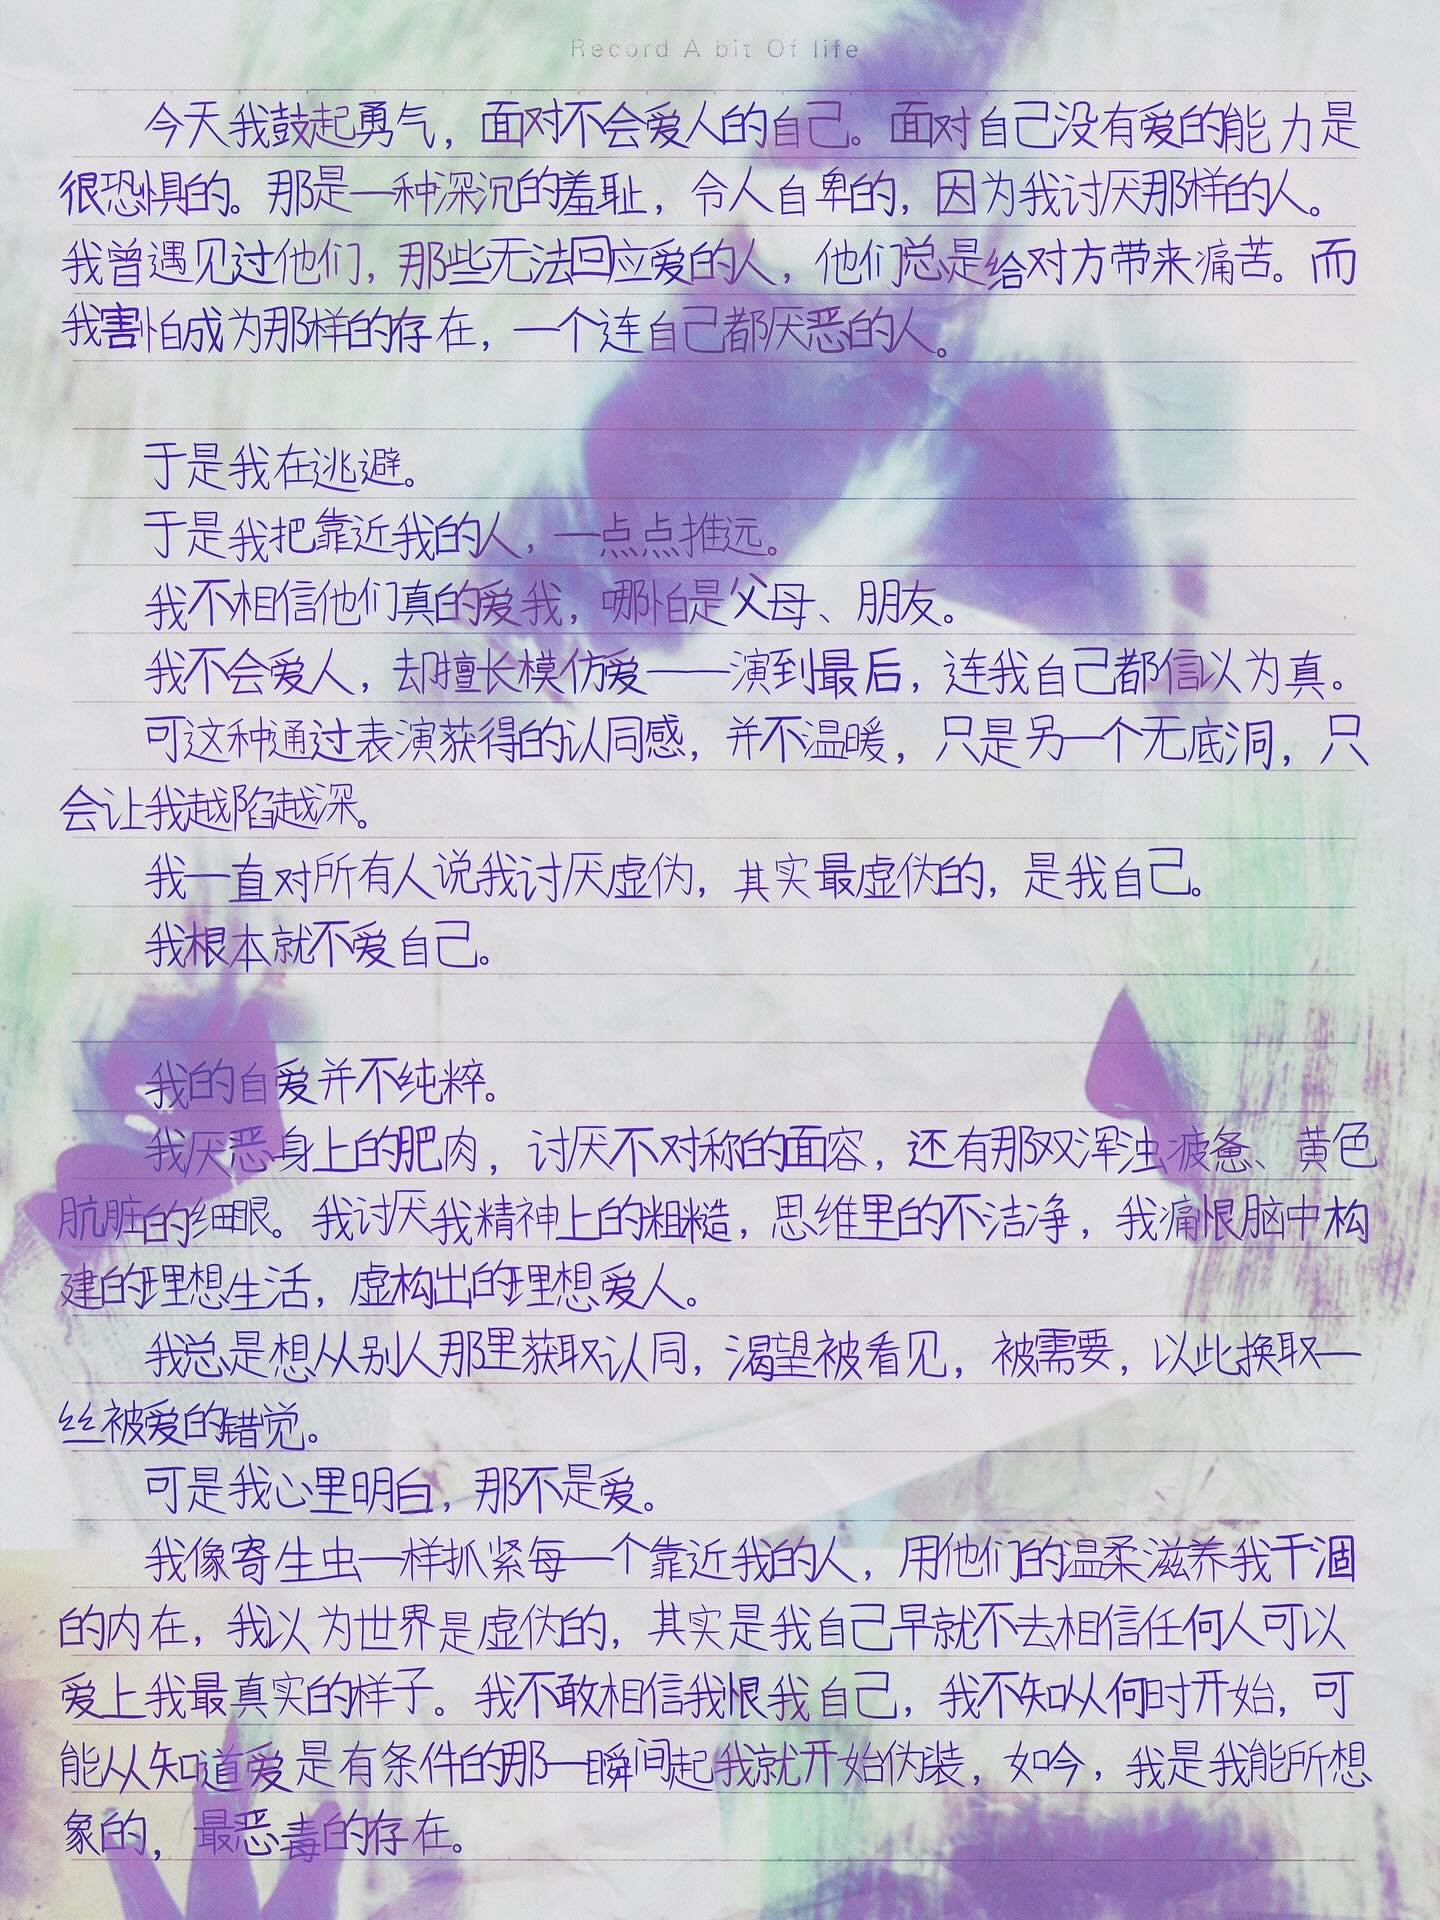 Record A bit Of life
今天我鼓起勇气，面对不会爱人的自己。面对自己没有爱的能力是
很恐惧的。那是一种深沉的羞耻，令人自卑的，因为我讨厌那样的人。
我曾遇见过他们，那些无法回应爱的人，他们总是给对方带来痛苦。而
我害怕成为那样的存在，一个连自己都厌恶的人。
于是我在逃避。
于是我把靠近我的人，一点点推远。
我不相信他们真的爱我，哪怕是父母、朋友。
我不会爱人，却擅长模仿爱——演到最后，连我自己都信以为真。
可这种通过表演获得的认同感，并不温暖，只是另一个无底洞，只
会让我越陷越深。
我一直对所有人说我讨厌虚伪，其实最虚伪的，是我自己。
我根本就不爱自己。
我的自爱并不纯粹。
我厌恶身上的肥肉，讨厌不对称的面容，还有那双浑浊疲惫、黄色
肮脏的细眼。我讨厌我精神上的粗糙，思维里的不洁净，我痛恨脑中构
建的理想生活，虚构出的理想爱人。
我总是想从别人那里获取认同，渴望被看见，被需要，以此换取一
丝被爱的错觉。
可是我心里明白，那不是爱。
我像寄生虫一样抓紧每一个靠近我的人，用他们的温柔滋养我干涸
的内在，我以为世界是虚伪的，其实是我自己早就不去相信任何人可以
爱上我最真实的样子。我不敢相信我恨我自己，我不知从何时开始，可
能从知道爱是有条件的那一瞬间起我就开始伪装，如今，我是我能所想
象的，最恶毒的存在。